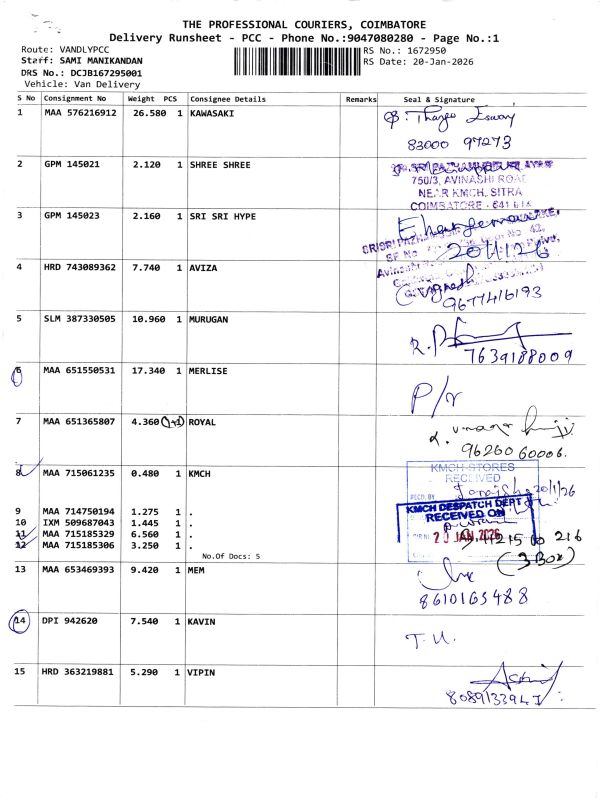 THE PROFESSIONAL COURIERS, COIMBATORE
Delivery Runsheet - PCC - Phone No.:9047080280 - Page No.:1
Route: VANDLYPCC
RS No.: 1672950
Staff: SAMI MANIKANDAN
RS Date: 20-Jan-2026
DRS No.: DCJB167295001
Vehicle: Van Delivery
S No Consignment No Weight PCS Consignee Details Remarks Seal & Signature
1 MAA 576216912 26.580 1 KAWASAKI
83000 97273
2 GPM 145021 2.120 1 SHREE SHREE
750/3, AVINASHI ROAD
NEAR KMCH, SITRA
COIMBATORE - 641 014
3 GPM 145023 2.160 1 SRI SRI HYPE
20/1/26
4 HRD 743089362 7.740 1 AVIZA
9677416193
5 SLM 387330505 10.960 1 MURUGAN
7639188009
6 MAA 651550531 17.340 1 MERLISE
P/r
7 MAA 651365807 4.360 ROYAL
96260 60006.
8 MAA 715061235 0.480 1 KMCH
KMCH-STORES
RECEIVED
20/1/26
KMCH DESPATCH DEPT
RECEIVED ON
20 JAN 2026
9 MAA 714750194 1.275 1 .
10 IXM 509687043 1.445 1 .
11 MAA 715185329 6.560 1 .
12 MAA 715185306 3.250 1 .
216
(3 Box)
No.Of Docs: 5
13 MAA 653469393 9.420 1 MEM
8610165488
14 DPI 942620 7.540 1 KAVIN
T.U.
15 HRD 363219881 5.290 1 VIPIN